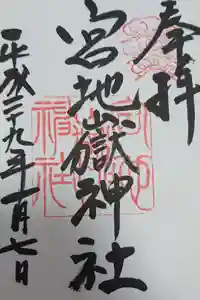 奉拝
宮地嶽神社
平成二十九年一月七日